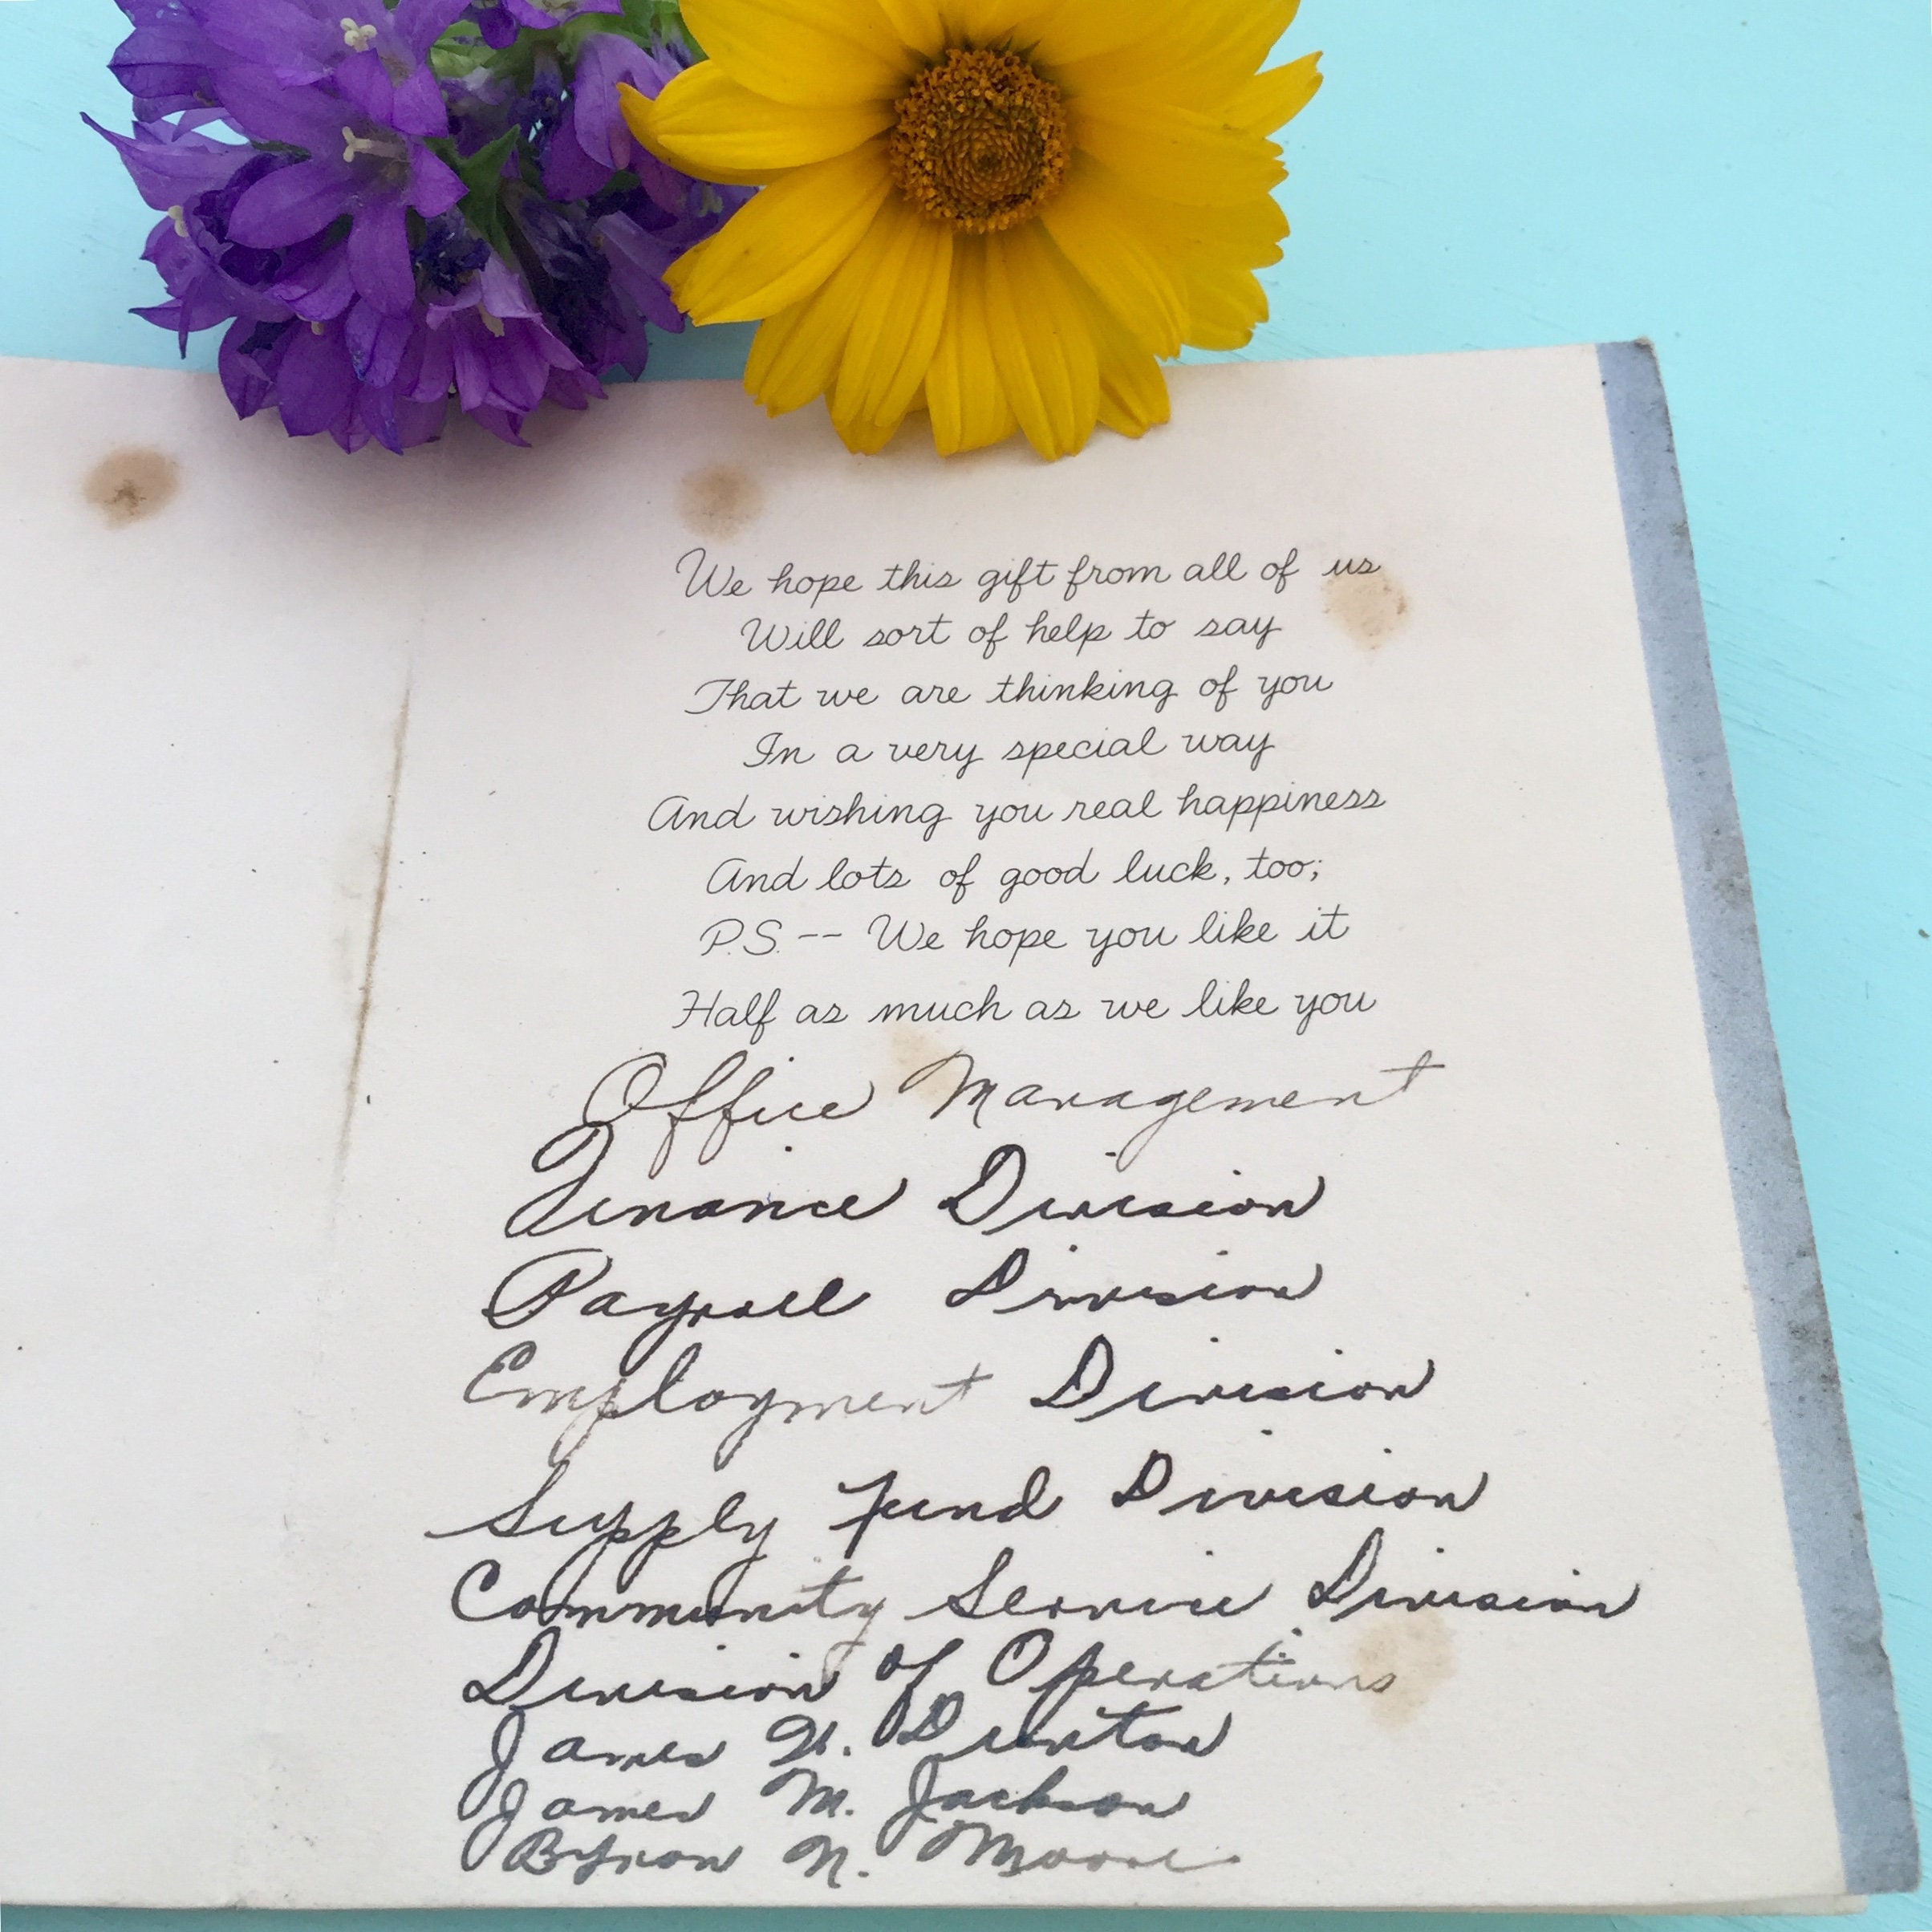 We hope this gift from all of us
Will sort of help to say
That we are thinking of you
In a very special way
And wishing you real happiness
And lots of good luck, too;
P.S. -- We hope you like it
Half as much as we like you
Office Management
Finance Division
Payroll Division
Employment Division
Supply Fund Division
Community Service Division
Division of Operations
James H. Dunton
James M. Jackson
Byron N. Moore